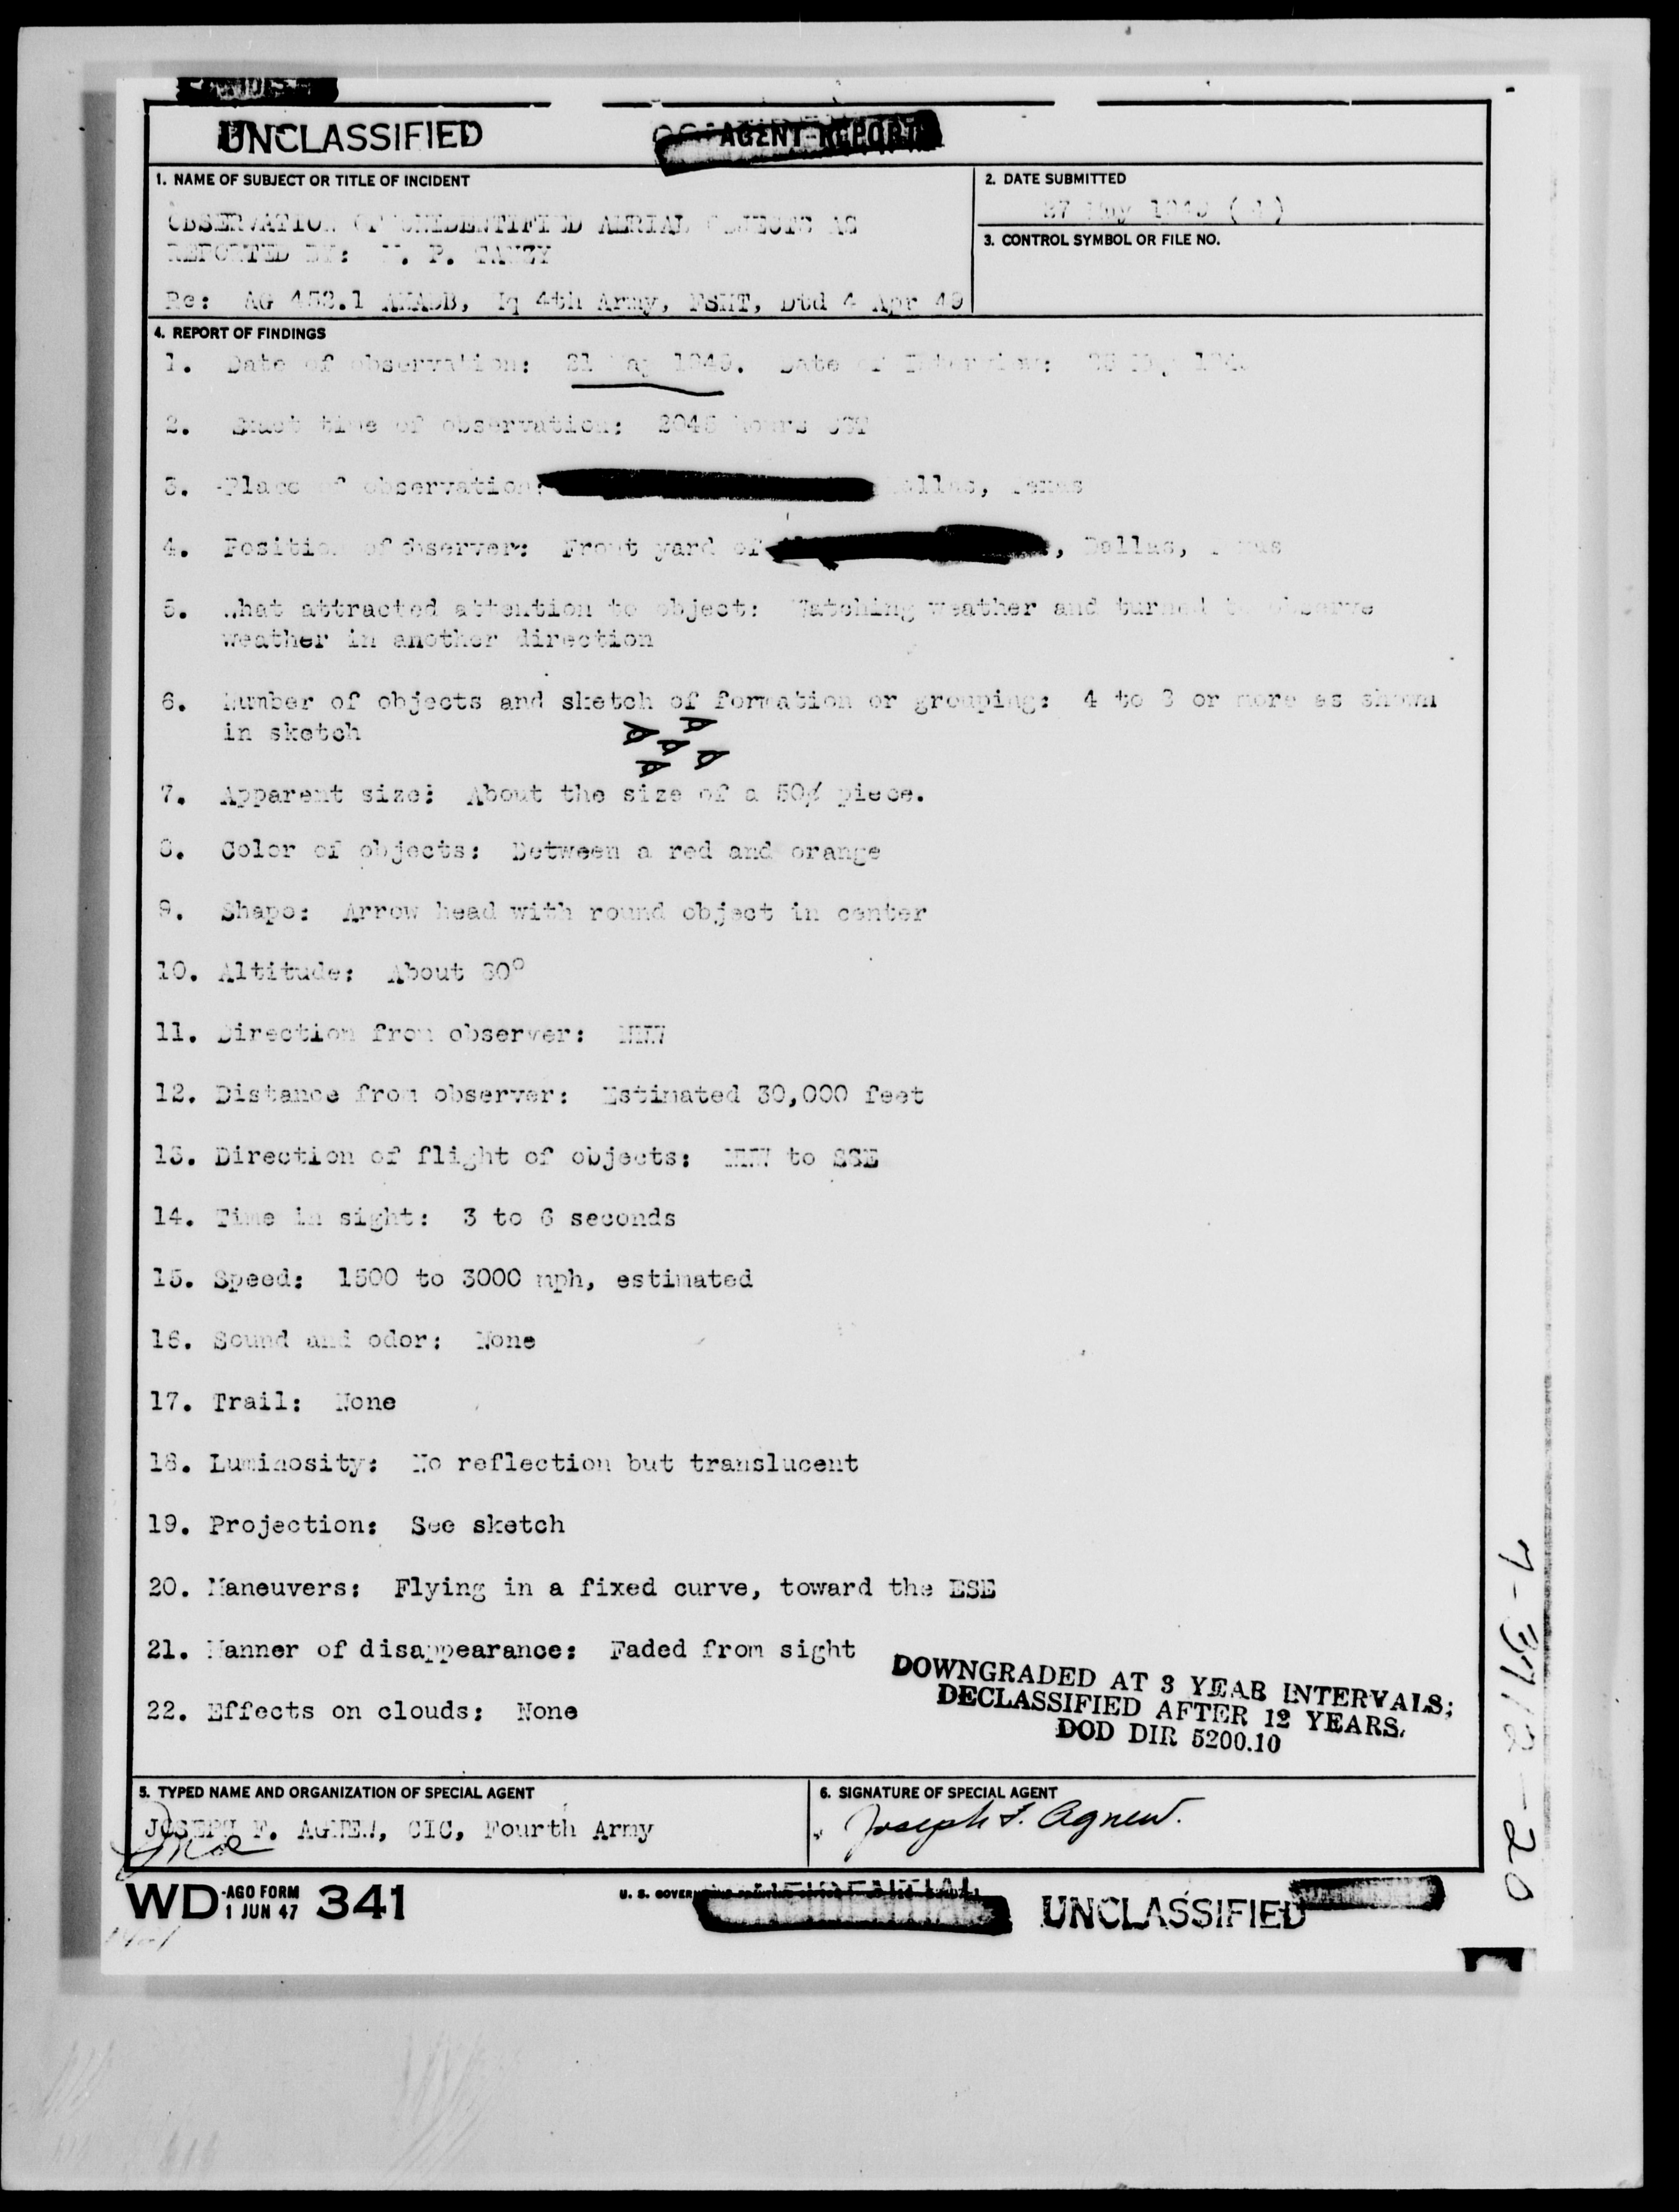 UNCLASSIFIED
AGENT REPORT
1. NAME OF SUBJECT OR TITLE OF INCIDENT
OBSERVATION OF UNIDENTIFIED AERIAL OBJECTS AS
REPORTED BY: P. TANZY
Re: AG 452.1 AKADB, Hq 4th Army, FSHT, Dtd 4 Apr 49
2. DATE SUBMITTED
27 May 1949
3. CONTROL SYMBOL OR FILE NO.
4. REPORT OF FINDINGS
1. Date of observation: 21 May 1949. Date of Interview:
2. Exact time of observation: 2045 hours CST
3. Place of observation: Dallas, Texas
4. Position of observer: Front yard of , Dallas, Texas
5. What attracted attention to object: Watching weather and turned to observe
weather in another direction
6. Number of objects and sketch of formation or grouping: 4 to 8 or more as shown
in sketch
7. Apparent size: About the size of a 50¢ piece.
8. Color of objects: Between a red and orange
9. Shape: Arrow head with round object in center
10. Altitude: About 30°
11. Direction from observer: NNW
12. Distance from observer: Estimated 30,000 feet
13. Direction of flight of objects: NNW to SSE
14. Time in sight: 3 to 6 seconds
15. Speed: 1500 to 3000 mph, estimated
16. Sound and odor: None
17. Trail: None
18. Luminosity: No reflection but translucent
19. Projection: See sketch
20. Maneuvers: Flying in a fixed curve, toward the ESE
21. Manner of disappearance: Faded from sight
22. Effects on clouds: None
DOWNGRADED AT 3 YEAR INTERVALS;
DECLASSIFIED AFTER 12 YEARS.
DOD DIR 5200.10
5. TYPED NAME AND ORGANIZATION OF SPECIAL AGENT
JOSEPH F. AGNEW, CIC, Fourth Army
6. SIGNATURE OF SPECIAL AGENT
Joseph F. Agnew.
WD AGO FORM 341
1 JUN 47
U. S. GOVERNMENT PRINTING OFFICE
CONFIDENTIAL
UNCLASSIFIED